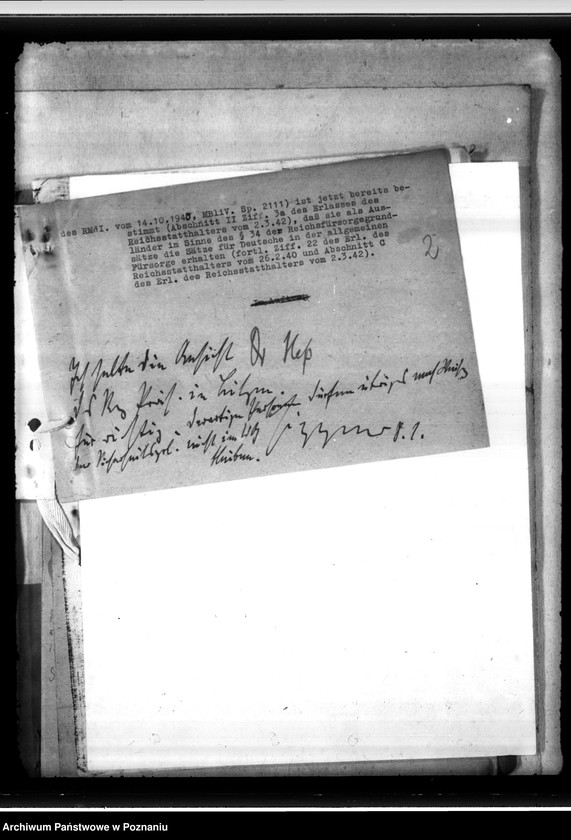 2
des RMdI. vom 14.10.1940, MBliV. Sp. 2111) ist jetzt bereits be-
stimmt (Abschnitt II Ziff. 3a des Erlasses des
Reichsstatthalters vom 2.3.42), daß sie als Aus-
länder im Sinne des § 34 der Reichsfürsorgegrund-
sätze die Sätze für Deutsche in der allgemeinen
Fürsorge erhalten (fortl. Ziff. 22 des Erl. des
Reichsstatthalters vom 26.2.40 und Abschnitt C
des Erl. des Reichsstatthalters vom 2.3.42).
2
Ich halte die Ansicht
des Reg Präs. in
für richtig. Derartige dürfen übrigens nach
der Sicherheitspol. nicht im
bleiben.
Archiwum Państwowe w Poznaniu